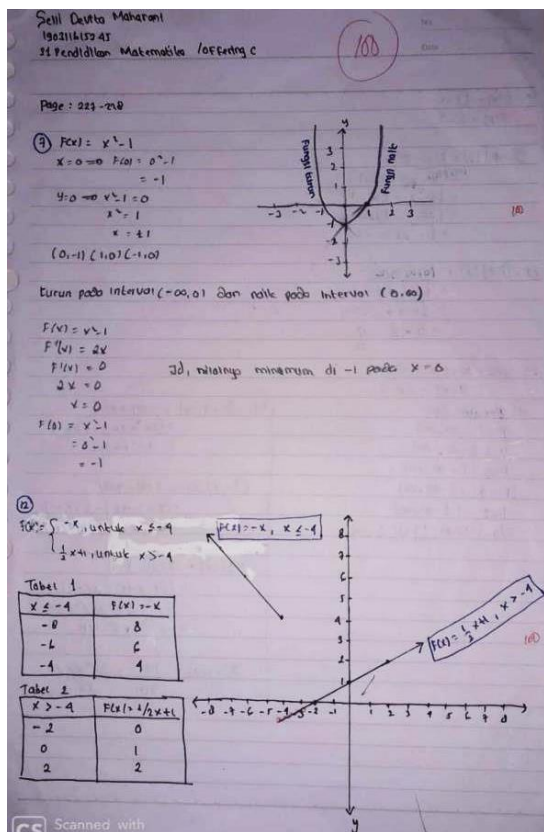 Selli Devita Maharani
S1 Pendidikan Matematika /Offering C
100
No
Date
Page : 227-228
7 F(x) = x²-1
x=0 => F(0) = 0²-1
= -1
y=0 => x²-1 = 0
x² = 1
x = ±1
(0,-1) (1,0) (-1,0)
y
Fungsi turun
Fungsi naik
3
2
1
-3 -2 -1 1 2 3
-1
-2
-3
100
turun pada interval (-∞,0) dan naik pada interval (0,∞)
F(x) = x²-1
F'(x) = 2x
F'(x) = 0
2x = 0
x = 0
F(0) = x²-1
= 0²-1
= -1
Jd, nilainya minimum di -1 pada x = 0
12
F(x) = { -x, untuk x ≤ -4
1/2 x+1, untuk x > -4
F(x) = -x, x ≤ -4
Tabel 1
x ≤ -4 F(x) = -x
-8 8
-6 6
-4 4
Tabel 2
x > -4 F(x) = 1/2x+1
-2 0
0 1
2 2
8
7
6
5
4
3
2
1
-8 -7 -6 -5 -4 -3 -2 -1 1 2 3 4 5 6 7 8
F(x) = 1/2 x+1, x > -4
100
y
CS Scanned with